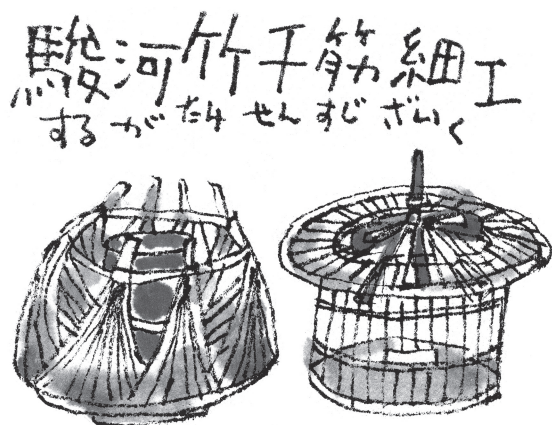 駿河竹千筋細工
するがたけせんすじざいく